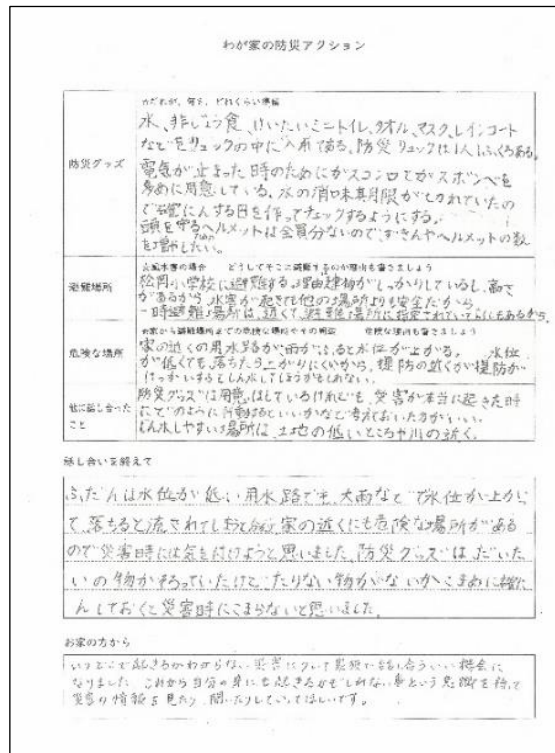 わが家の防災アクション
☆だれが、何を、どれくらい準備
防災グッズ
水、非じょう食、けいたいミニトイレ、タオル、マスク、レインコート
などをリュックの中に入れてある。防災リュックは1人1ふくろある。
電気が止まった時のためにガスコンロとガスボンベを
多めに用意している。水の消味期限がきれていたの
で確にんする日を作ってチェックするようにする。
頭を守るヘルメットは全員分ないので、ずきんやヘルメットの数
を増やしたい。
☆風水害の場合 どうしてそこに避難するのか理由も書きましょう
避難場所
松岡小学校に避難する。理由は建物がしっかりしているし、高さ
があるから、水害が起きても他の場所よりも安全だから
一時避難場所は、近くて、避難場所に指定されている
☆家から避難場所までの危険な場所やその周辺 危険な理由も書きましょう
危険な場所
家の近くの用水路が、雨がふると水位が上がる。 水位
が低くても、落ちたら上がりにくいから、堤防の近くが堤防が
けっかいするとしん水してしまうかもしれない。
他に話し合った
こと
防災グッズは用意はしているけれども、災害が本当に起きた時
にどのように行動するといいかなど考えておいた方がいい。
しん水しやすい場所は、土地の低いところや川の近く。
話し合いを終えて
ふだんは水位が低い用水路でも、大雨などで水位が上がっ
て、落ちると流されてしまうなど、家の近くにも危険な場所がある
ので災害時には気を付けようと思いました。防災グッズは、だいた
いの物がそろっていたけど、たりない物がないかこまめに確に
んしておくと災害時にこまらないと思いました。
お家の方から
いつどこで起きるかわからない災害について家族で話し合ういい機会に
なりました。これから自分の身にも起きるかもしれない事という意識を持って
災害の情報を見たり、聞いたりしていってほしいです。